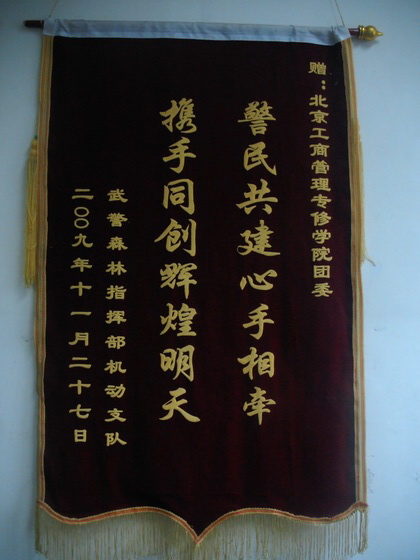 赠：北京工商管理专修学院团委
警民共建心手相牵
携手同创辉煌明天
武警森林指挥部机动支队
二〇〇九年十一月二十七日